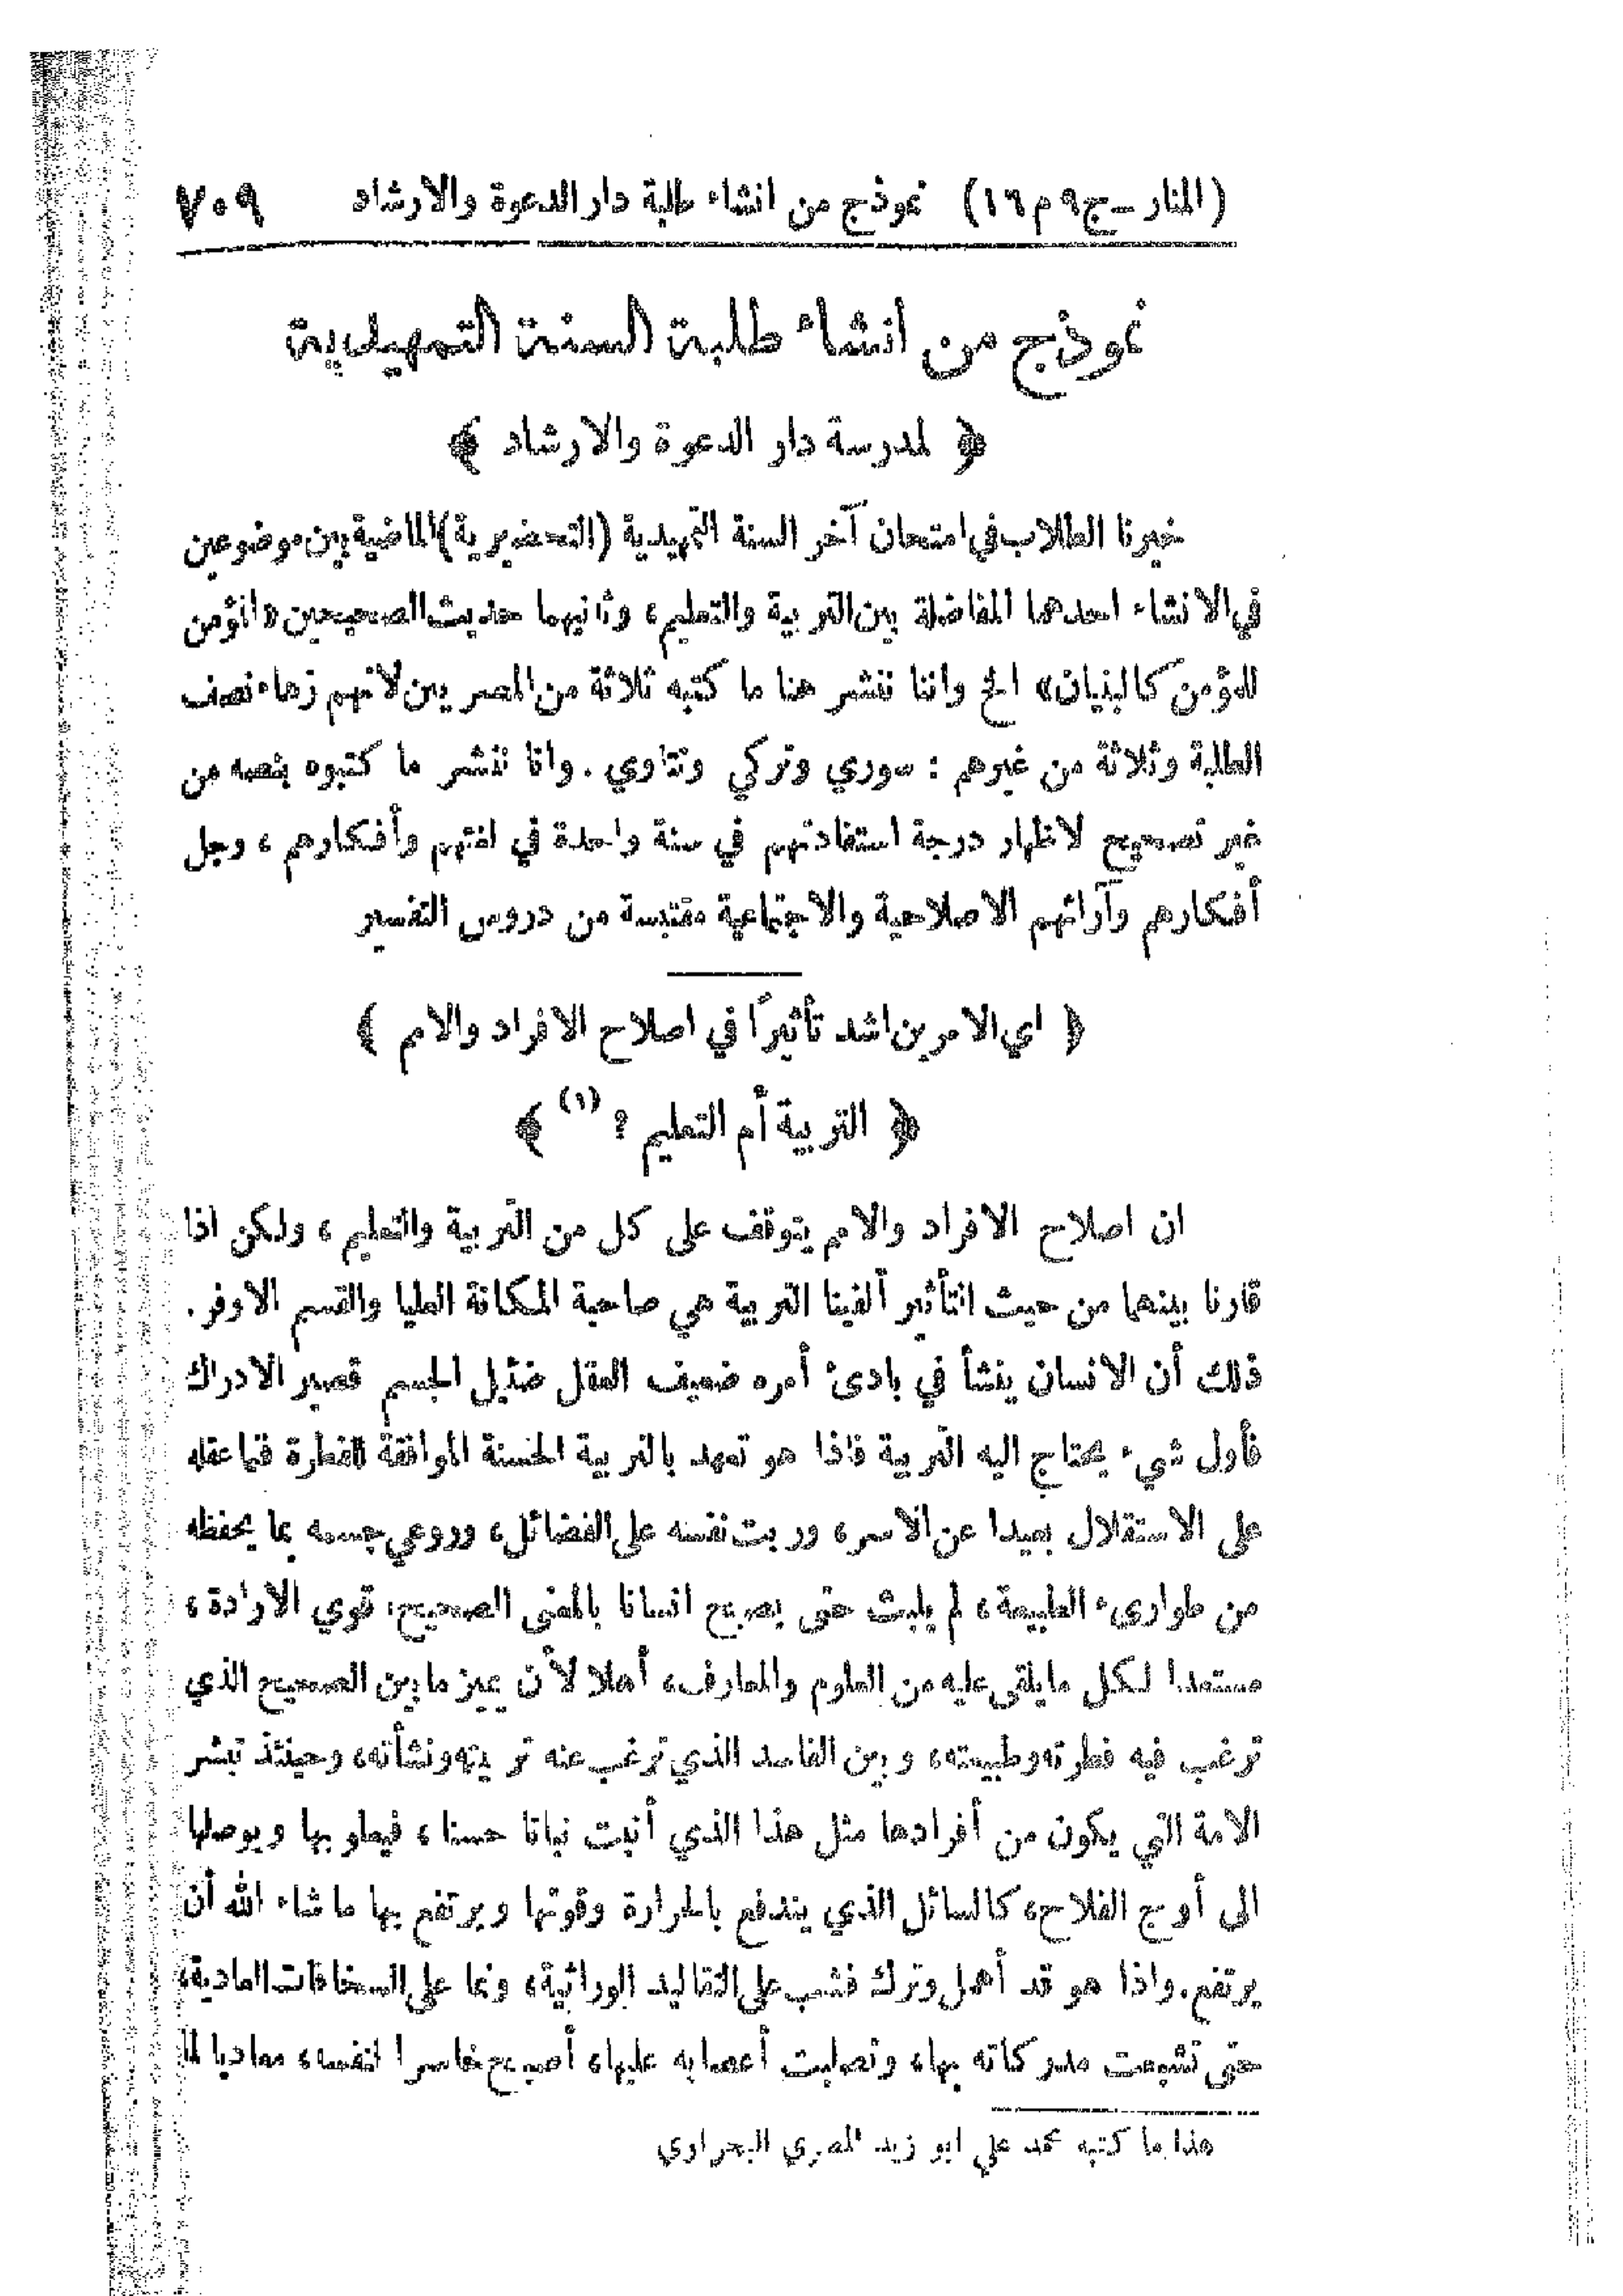 (المنار ـ ج٩ م١٦) نموذج من انشاء طلبة دار الدعوة والارشاد ٧٠٩
نموذج من انشاء طلبة السنة التمهيدية
﴿ لمدرسة دار الدعوة والارشاد ﴾
خيرنا الطلاب في امتحان آخر السنة التمهيدية (التحضيرية) الماضية بين موضوعين
في الانشاء احدهما المفاضلة بين التربية والتعليم، وثانيهما حديث الصحيحين «المؤمن
للمؤمن كالبنيان» الخ واننا ننشر هنا ما كتبه ثلاثة من المصريين لانهم زهاء نصف
الطلبة وثلاثة من غيرهم : سوري وتركي وتتاوي . وانا ننشر ما كتبوه بنصه من
غير تصحيح لاظهار درجة استفادتهم في سنة واحدة في لغتهم وأفكارهم ، وجل
أفكارهم وآرائهم الاصلاحية والاجتماعية مقتبسة من دروس التفسير
﴿ اي الامرين اشد تأثيرًا في اصلاح الافراد والامم ﴾
﴿ التربية أم التعليم ? (١) ﴾
ان اصلاح الافراد والامم يتوقف على كل من التربية والتعليم ، ولكن اذا
قارنا بينهما من حيث التأثير ألفينا التربية هي صاحبة المكانة العليا والقسم الاوفر .
ذلك أن الانسان ينشأ في بادئ أمره ضعيف العقل ضئيل الجسم قصير الادراك
فأول شيء يحتاج اليه التربية فاذا هو تعهد بالتربية الحسنة الموافقة للفطرة فنما عقله
على الاستقلال بعيدا عن الاسر، وربت نفسه على الفضائل، وروعي جسمه بما يحفظه
من طوارىء الطبيعة، لم يلبث حتى يصبح انسانا بالمعنى الصحيح، قوي الارادة ،
مستعدا لكل ما يلقى عليه من العلوم والمعارف، أهلا لأن يميز ما بين الصحيح الذي
ترغب فيه فطرته وطبيعته، وبين الفاسد الذي ترغب عنه تربيته ونشأته، وحينئذ تبشر
الامة التي يكون من أفرادها مثل هذا الذي أنبت نباتا حسنا ، فيعلو بها ويوصلها
الى أوج الفلاح، كالسائل الذي يندفع بالحرارة وقوتها ويرتفع بها ما شاء الله أن
يرتفع. واذا هو قد أهمل وترك فشب على التقاليد الوراثية، ونما على السخافات العادية،
حتى تشبعت مدركاته بها، وتصلبت أعصابه عليها، أصبح خاسرا لنفسه، معاديا لما
هذا ما كتبه محمد علي ابو زيد المصري البحراوي